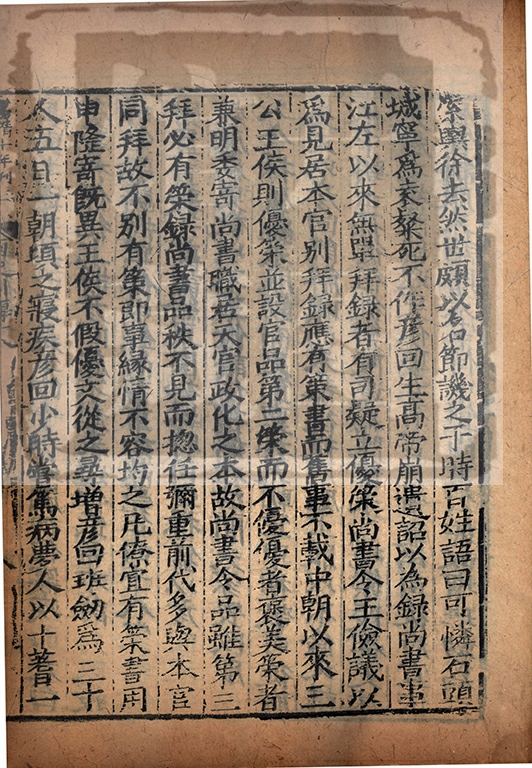 索輿徐去然世頗以名節譏之于時百姓語曰可憐石頭
城寧爲袁粲死不作彦回生髙帝崩遺詔以為錄尚書事
江左以來無單拜録者有司疑立優策尚書令王儉議以
爲見居本官别拜録應有策書而舊事不載中朝以來三
公王侯則優策並設官品第二策而不優優者褒美策者
兼明委寄尚書職居天官政化之本故尚書令品雖第三
拜必有策録尚書品秩不見而揔任彌重前代多與本官
同拜故不别有策即事縁情不容均之凡僚宜有策書用
申隆寄旣異王侯不假優文從之尋增彦回班劒爲三十
人五日一朝頃之寢疾彦回小時嘗篤病夢人以卜蓍一